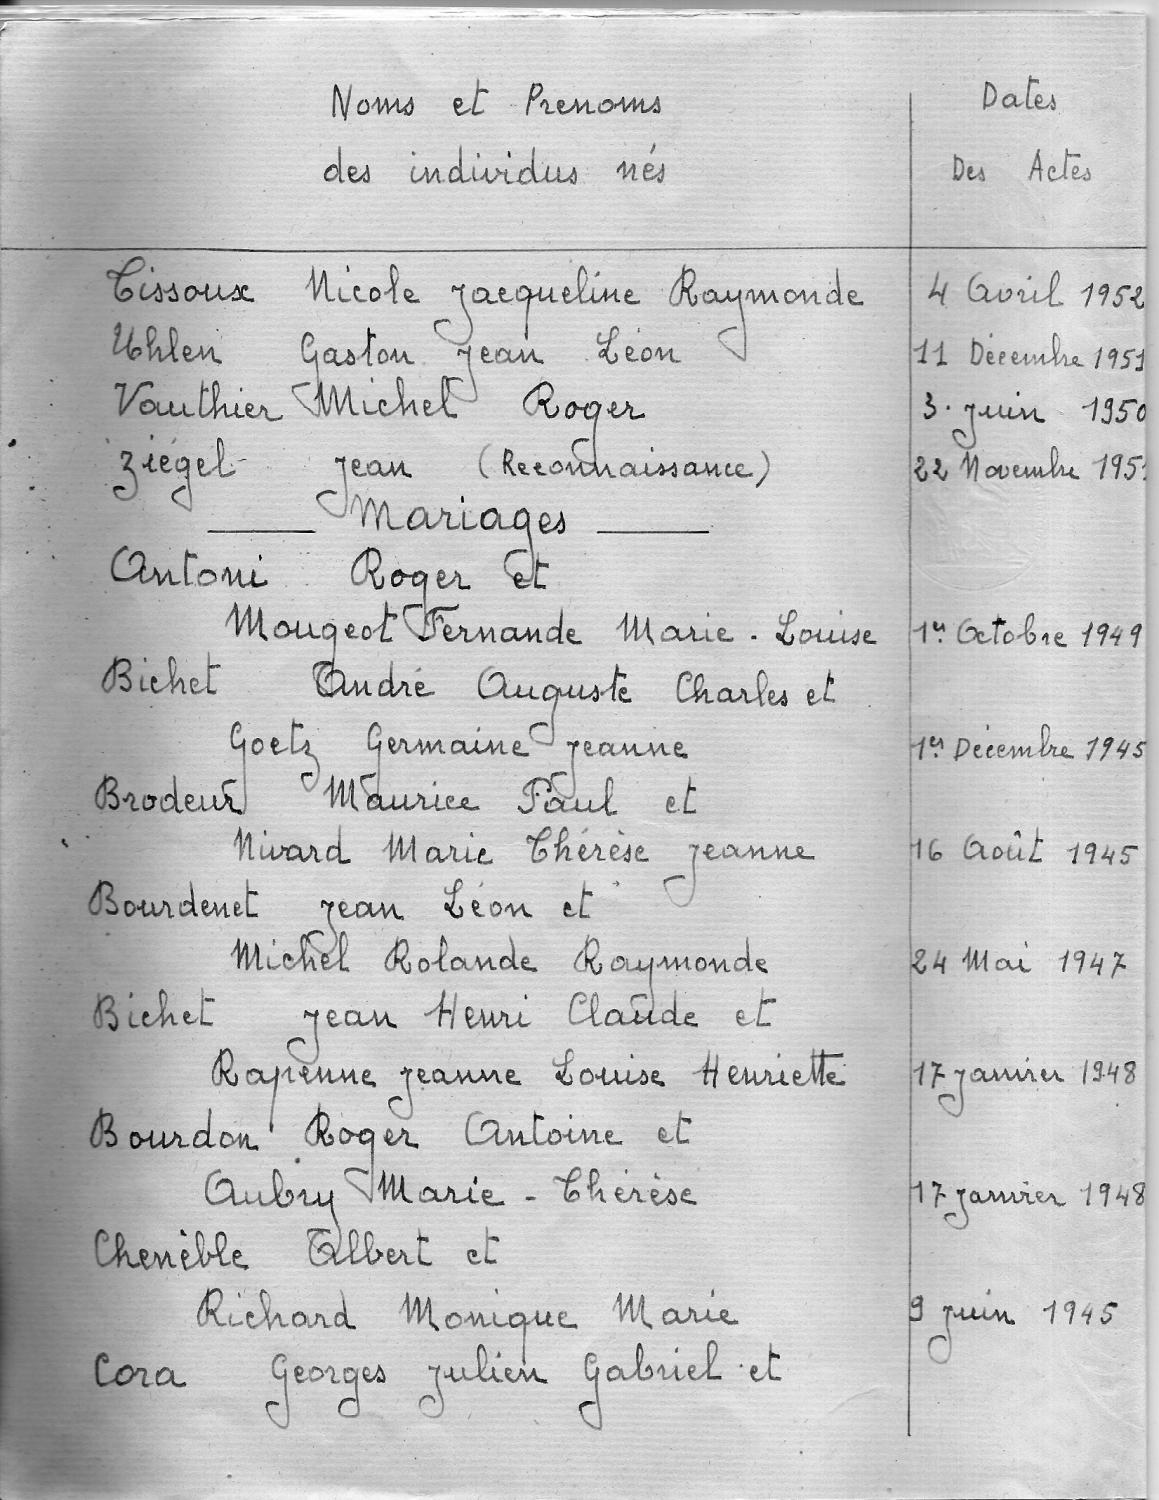 Noms et Prenoms Dates
des individus nés Des Actes
Tissoux Nicole Jacqueline Raymonde 4 Avril 1952
Uhlen Gaston Jean Léon 11 Décembre 1951
Vauthier Michel Roger 3 Juin 1950
Ziégel Jean (Reconnaissance) 22 Novembre 195
Mariages
Antoni Roger et
Mougeot Fernande Marie-Louise 1er Octobre 1949
Bichet André Auguste Charles et
Goetz Germaine Jeanne 1er Décembre 1945
Brodeur Maurice Paul et
Nivard Marie Thérèse Jeanne 16 Août 1945
Bourdenet Jean Léon et
Michel Rolande Raymonde 24 Mai 1947
Bichet Jean Henri Claude et
Rapenne Jeanne Louise Henriette 17 Janvier 1948
Bourdon Roger Antoine et
Aubry Marie-Thérèse 17 Janvier 1948
Chenèble Albert et
Richard Monique Marie 9 Juin 1945
Cora Georges Julien Gabriel et